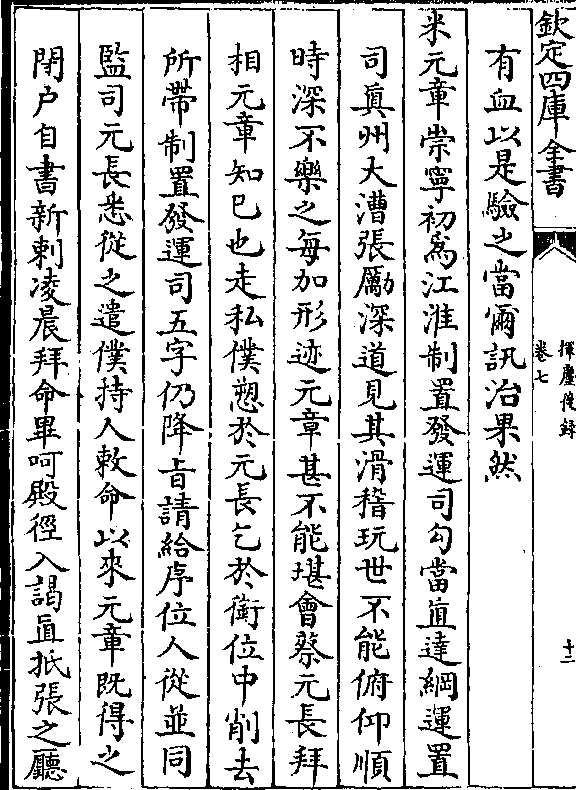 欽定四庫全書
揮麈後録
卷七
十二
有血以是驗之當爾訊治果然
米元章崇寧初爲江淮制置發運司勾當直達綱運置
司眞州大漕張勵深道見其滑稽玩世不能俯仰順
時深不樂之每加形迹元章甚不能堪會蔡元長拜
相元章知己也走私僕愬於元長乞於銜位中削去
所帶制置發運司五字仍降㫖請給序位人從並同
監司元長悉從之遣僕持人敕命以來元章既得之
閉户自書新刺凌晨拜命畢呵殿徑入謁直抵張之廳